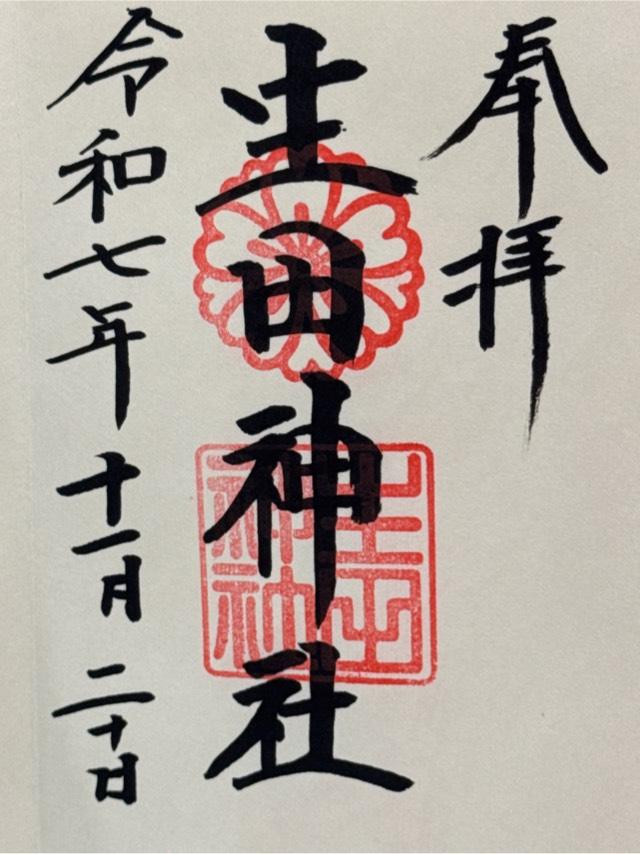 奉拝
生田神社
令和七年十一月二十日
生田
神社